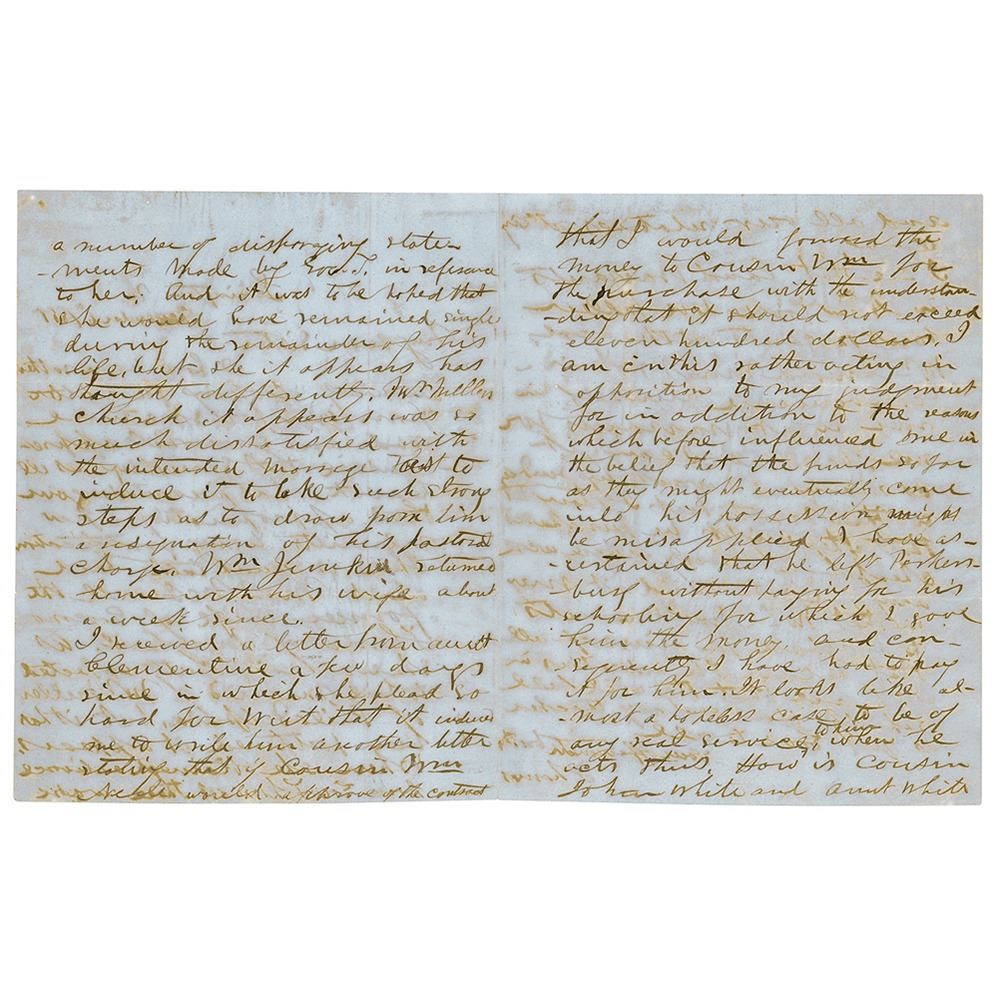 a number of disparaging state-
-ments made by in reference
to her; And it was to be hoped that
she would have remained single
during the remainder of his
life, but she it appears has
thought differently.
church it appears was so
much dissatisfied with
the intended marriage as to
induce it to take such strong
steps as to draw from him
a resignation of his pastoral
charge. Wm Junkin returned
home with his wife about
a week since.
I received a letter from aunt
Clementine a few days
since in which she plead so
hard for Wirt that it induced
me to write him another letter
stating that if Cousin Wm
would approve of the contract
that I would forward the
money to Cousin Wm for
the purchase with the understan-
-ding that it should not exceed
eleven hundred dollars, I
am in this rather acting in
opposition to my judgment
for in addition to the reasons
which before influenced me in
the belief that the funds so far
as they might eventually come
into his possession might
be misapplied I have as-
-certained that he left Parkers-
-burg without paying for his
schooling for which I gave
him the money, and con-
sequently I have had to pay
it for him. It looks like al-
-most a hopeless case to be of
any real service to him when he
acts thus. How is Cousin
John White and aunt White